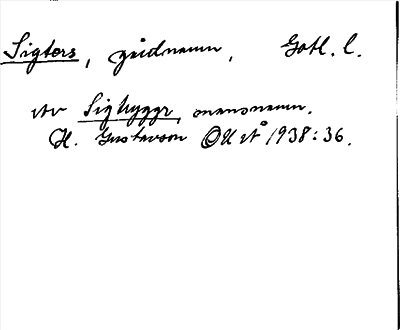 Sigters, gårdnamn, Gotl. l.
av Sighyggr, mansnamn.
H. Gustavson OUÅ 1938:36.